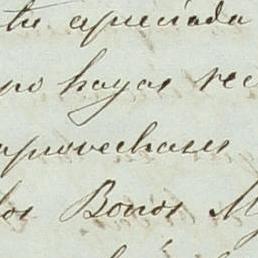 tu apreciada
no hayas rec
aprovechases
los Bonos My